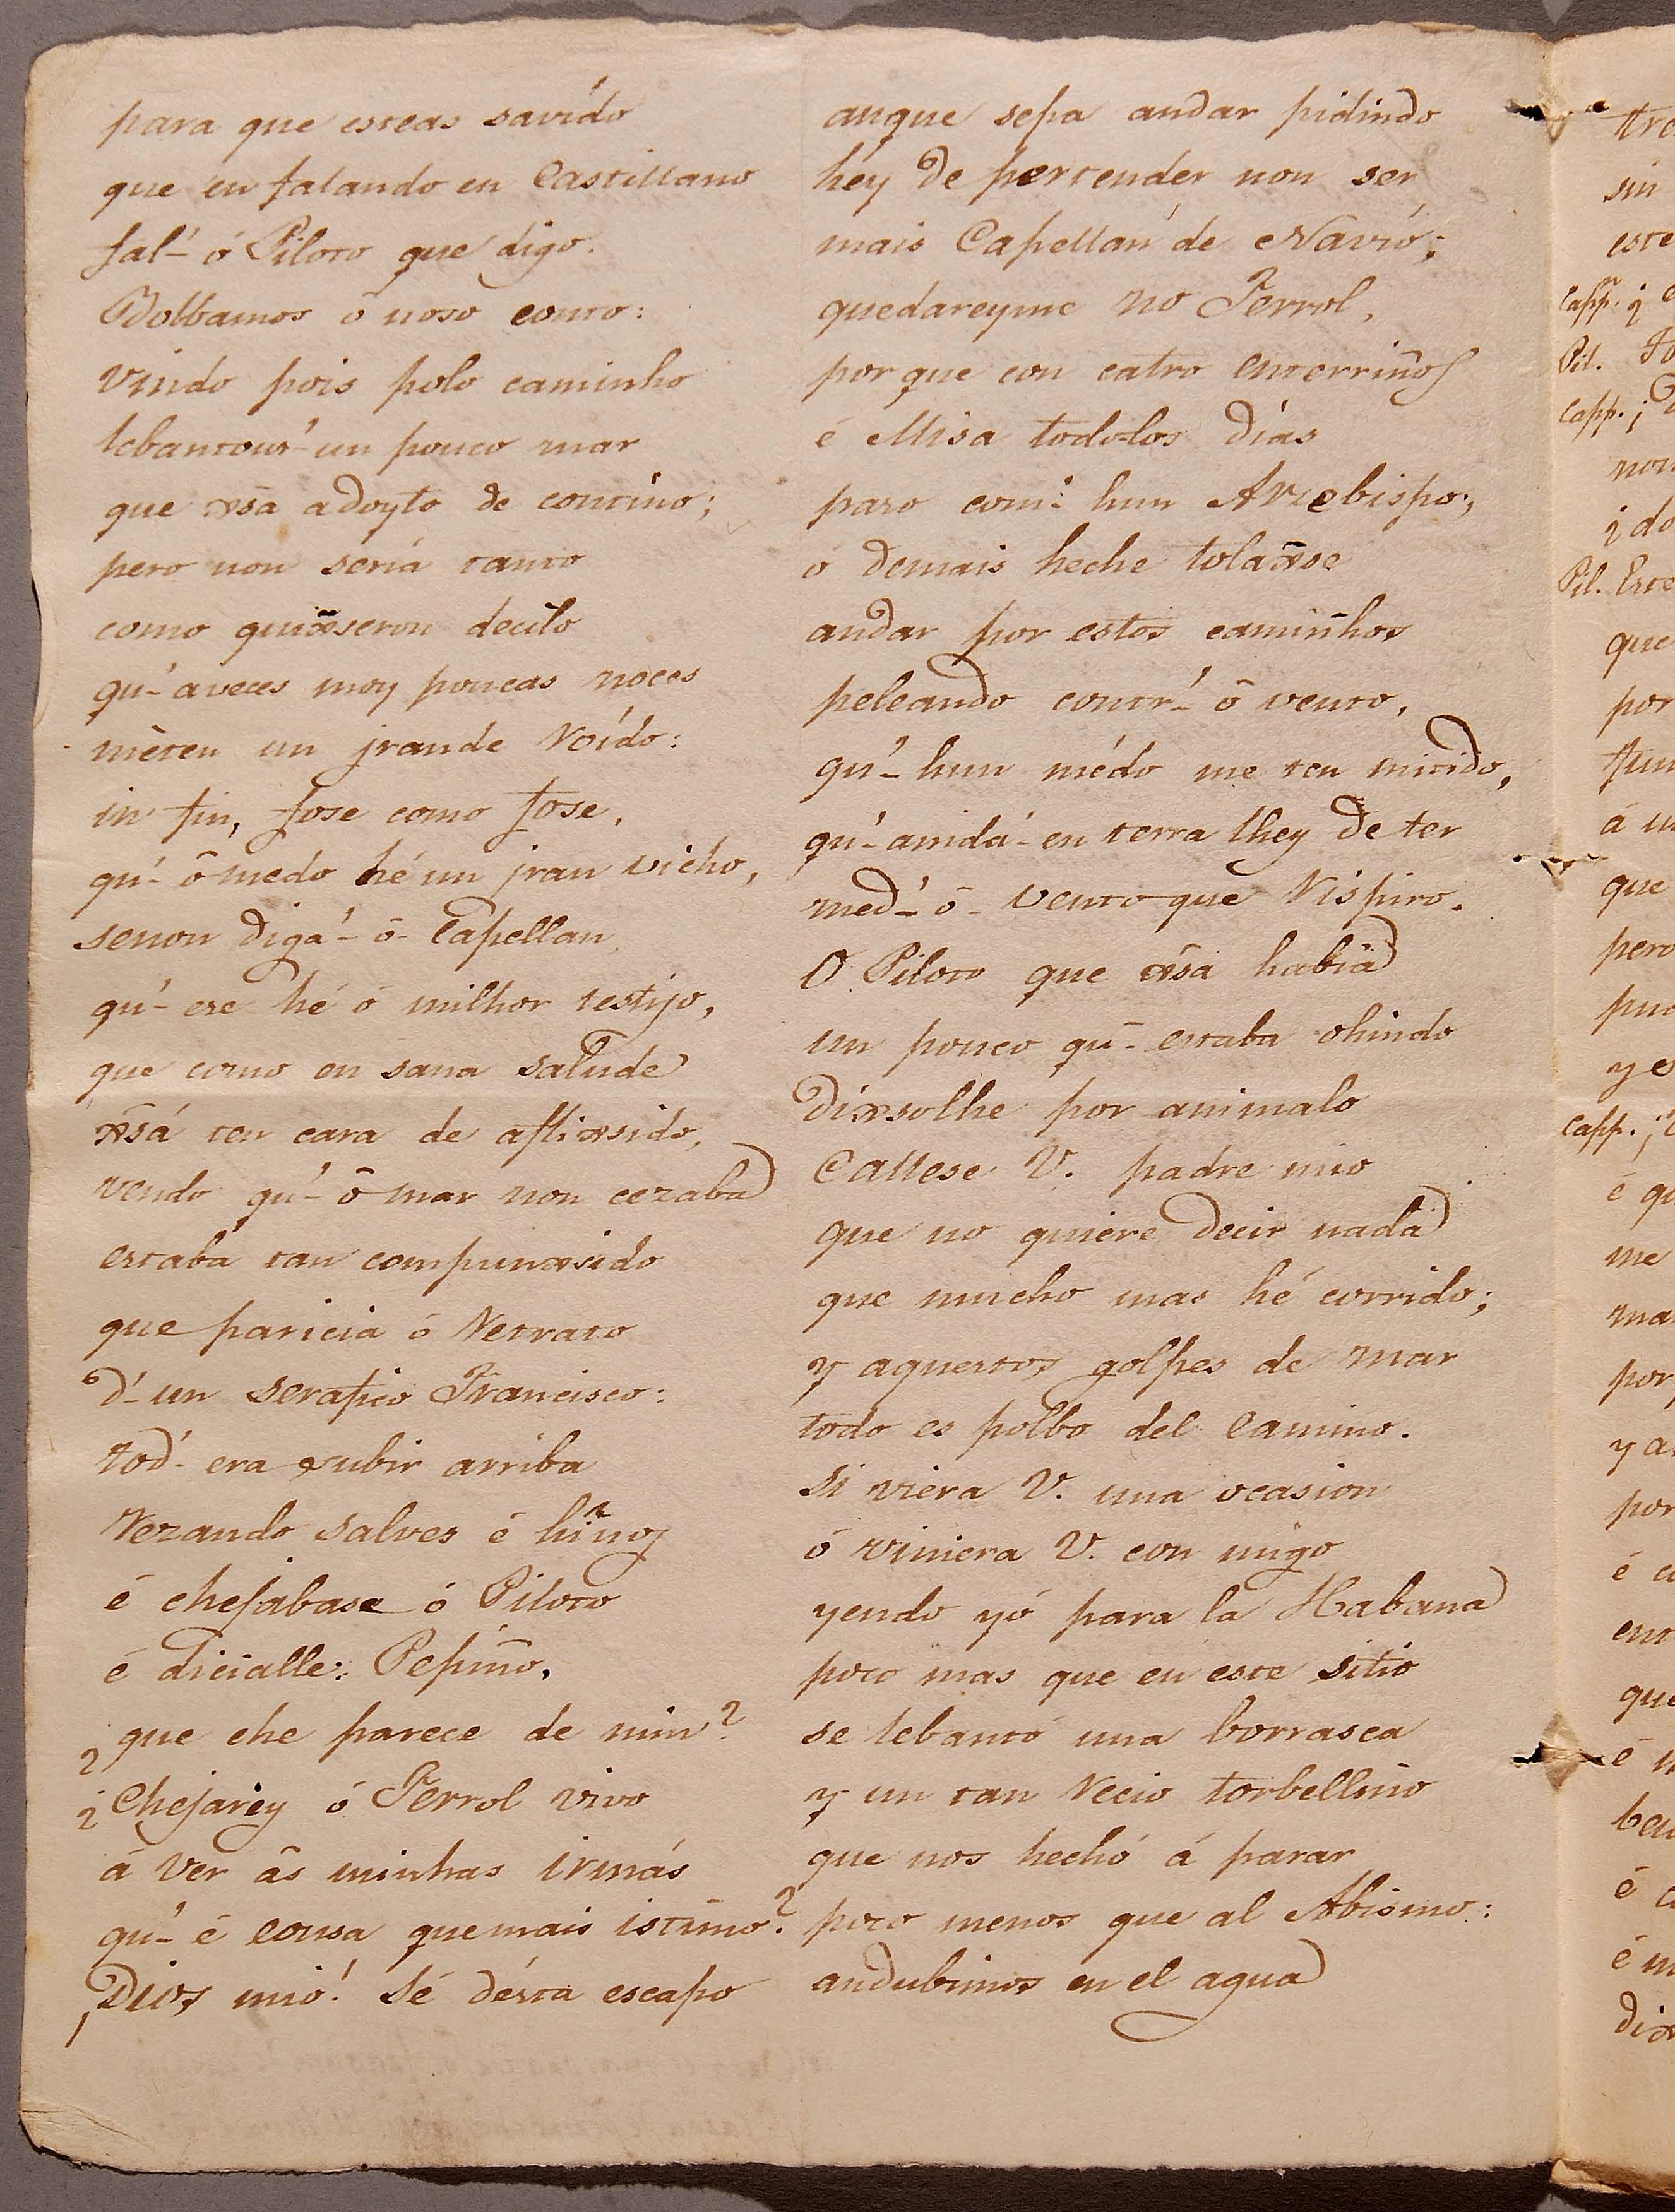 para que esteas savido
que en falando en Castillano
fal-ó Piloto que digo.
Bolbamos ó noso conto:
Vindo pois polo caminho
lebantous'-un pouco mar
que xsa adoyto de contino;
pero non sería tanto
como quixseron decilo
qu'-aveces moy poucas noces
méten un jrande Roído:
in fin, fose como fose,
qu'-ô medo hé un jran vicho,
senon diga'-ô-Capellan
qu'-ese hé ó milhor testijo,
que como en sana salude
xsá ten cara de aflixsido,
vendo qu'-ô mar non cezaba
estaba tan compunxsido
que paricia ó Retrato
d'-un serafico Francisco:
tod'-era xubir arriba
Rezando salves é hiños
é chejabase ó Piloto
é dicialle: Pepiño,
¿que che parece de min?
¿Chejarey ó Ferrol vivo
á ver âs minhas irmás
qu'-é cousa que mais istimo?
¡Dios mió! Sé désta escapo
auque sepa andar pidindo
héy de pertender non ser
mais Capellán de Navió;
quedareyme no Ferrol,
porque con catro enterriños
é Misa todo-los días
pazo com'hun Arzebispo;
ó demais heche tolaxse
andar por estos camiñhos
peleando contr'-ô vento,
qu'-hun médo me ten mitido,
qu'-aindá-en terra lhey de ter
med'-ô-vento que Rispiro.
O Piloto que xsa habiâ
un pouco qu'-estaba ohindo
díxsolhe por animalo
Callese V. padre mio
que no quiere decir nada
que mucho mas hé corrido;
y aquestos golpes de mar
todo es polbo del Camino.
Si viera V. una ocasion
ó viniera V. con migo
yendo yó para la Habana
poco mas que en este sitio
se lebantó una borrasca
y un tan Recio torbellino
que nos hechó á parar
poco menos que al Abismo:
andubimos en el agua